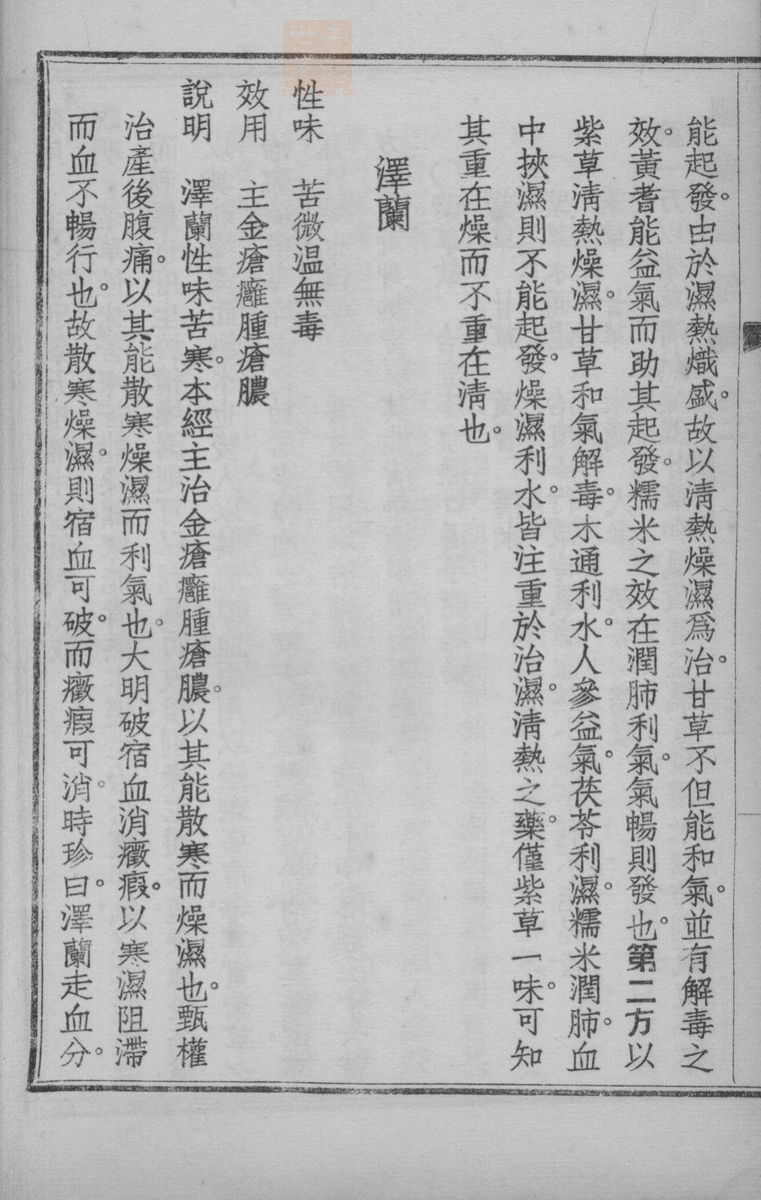 能起發。由於濕熱熾盛。故以淸熱燥濕爲治。甘草不但能和氣。並有解毒之
效。黃耆能益氣而助其起發。糯米之效在潤肺利氣。氣暢則發也。第二方以
紫草淸熱燥濕。甘草和氣解毒。木通利水。人參益氣。茯苓利濕。糯米潤肺。血
中挾濕則不能起發。燥濕利水。皆注重於治濕。淸熱之藥。僅紫草一味。可知
其重在燥而不重在淸也。
澤蘭
性味　苦微溫無毒
效用　主金瘡癰腫瘡膿
說明　澤蘭性味苦寒。本經主治金瘡癰腫瘡膿。以其能散寒而燥濕也。甄權
治產後腹痛。以其能散寒燥濕而利氣也。大明破宿血消癥瘕。以寒濕阻滯
而血不暢行也。故散寒燥濕。則宿血可破。而癥瘕可消。時珍曰。澤蘭走血分。